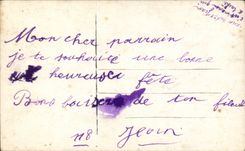 Mon cher parrain
je te souhaite une bonne
et heureuse fête
Bons baisers de ton filleul
Jean